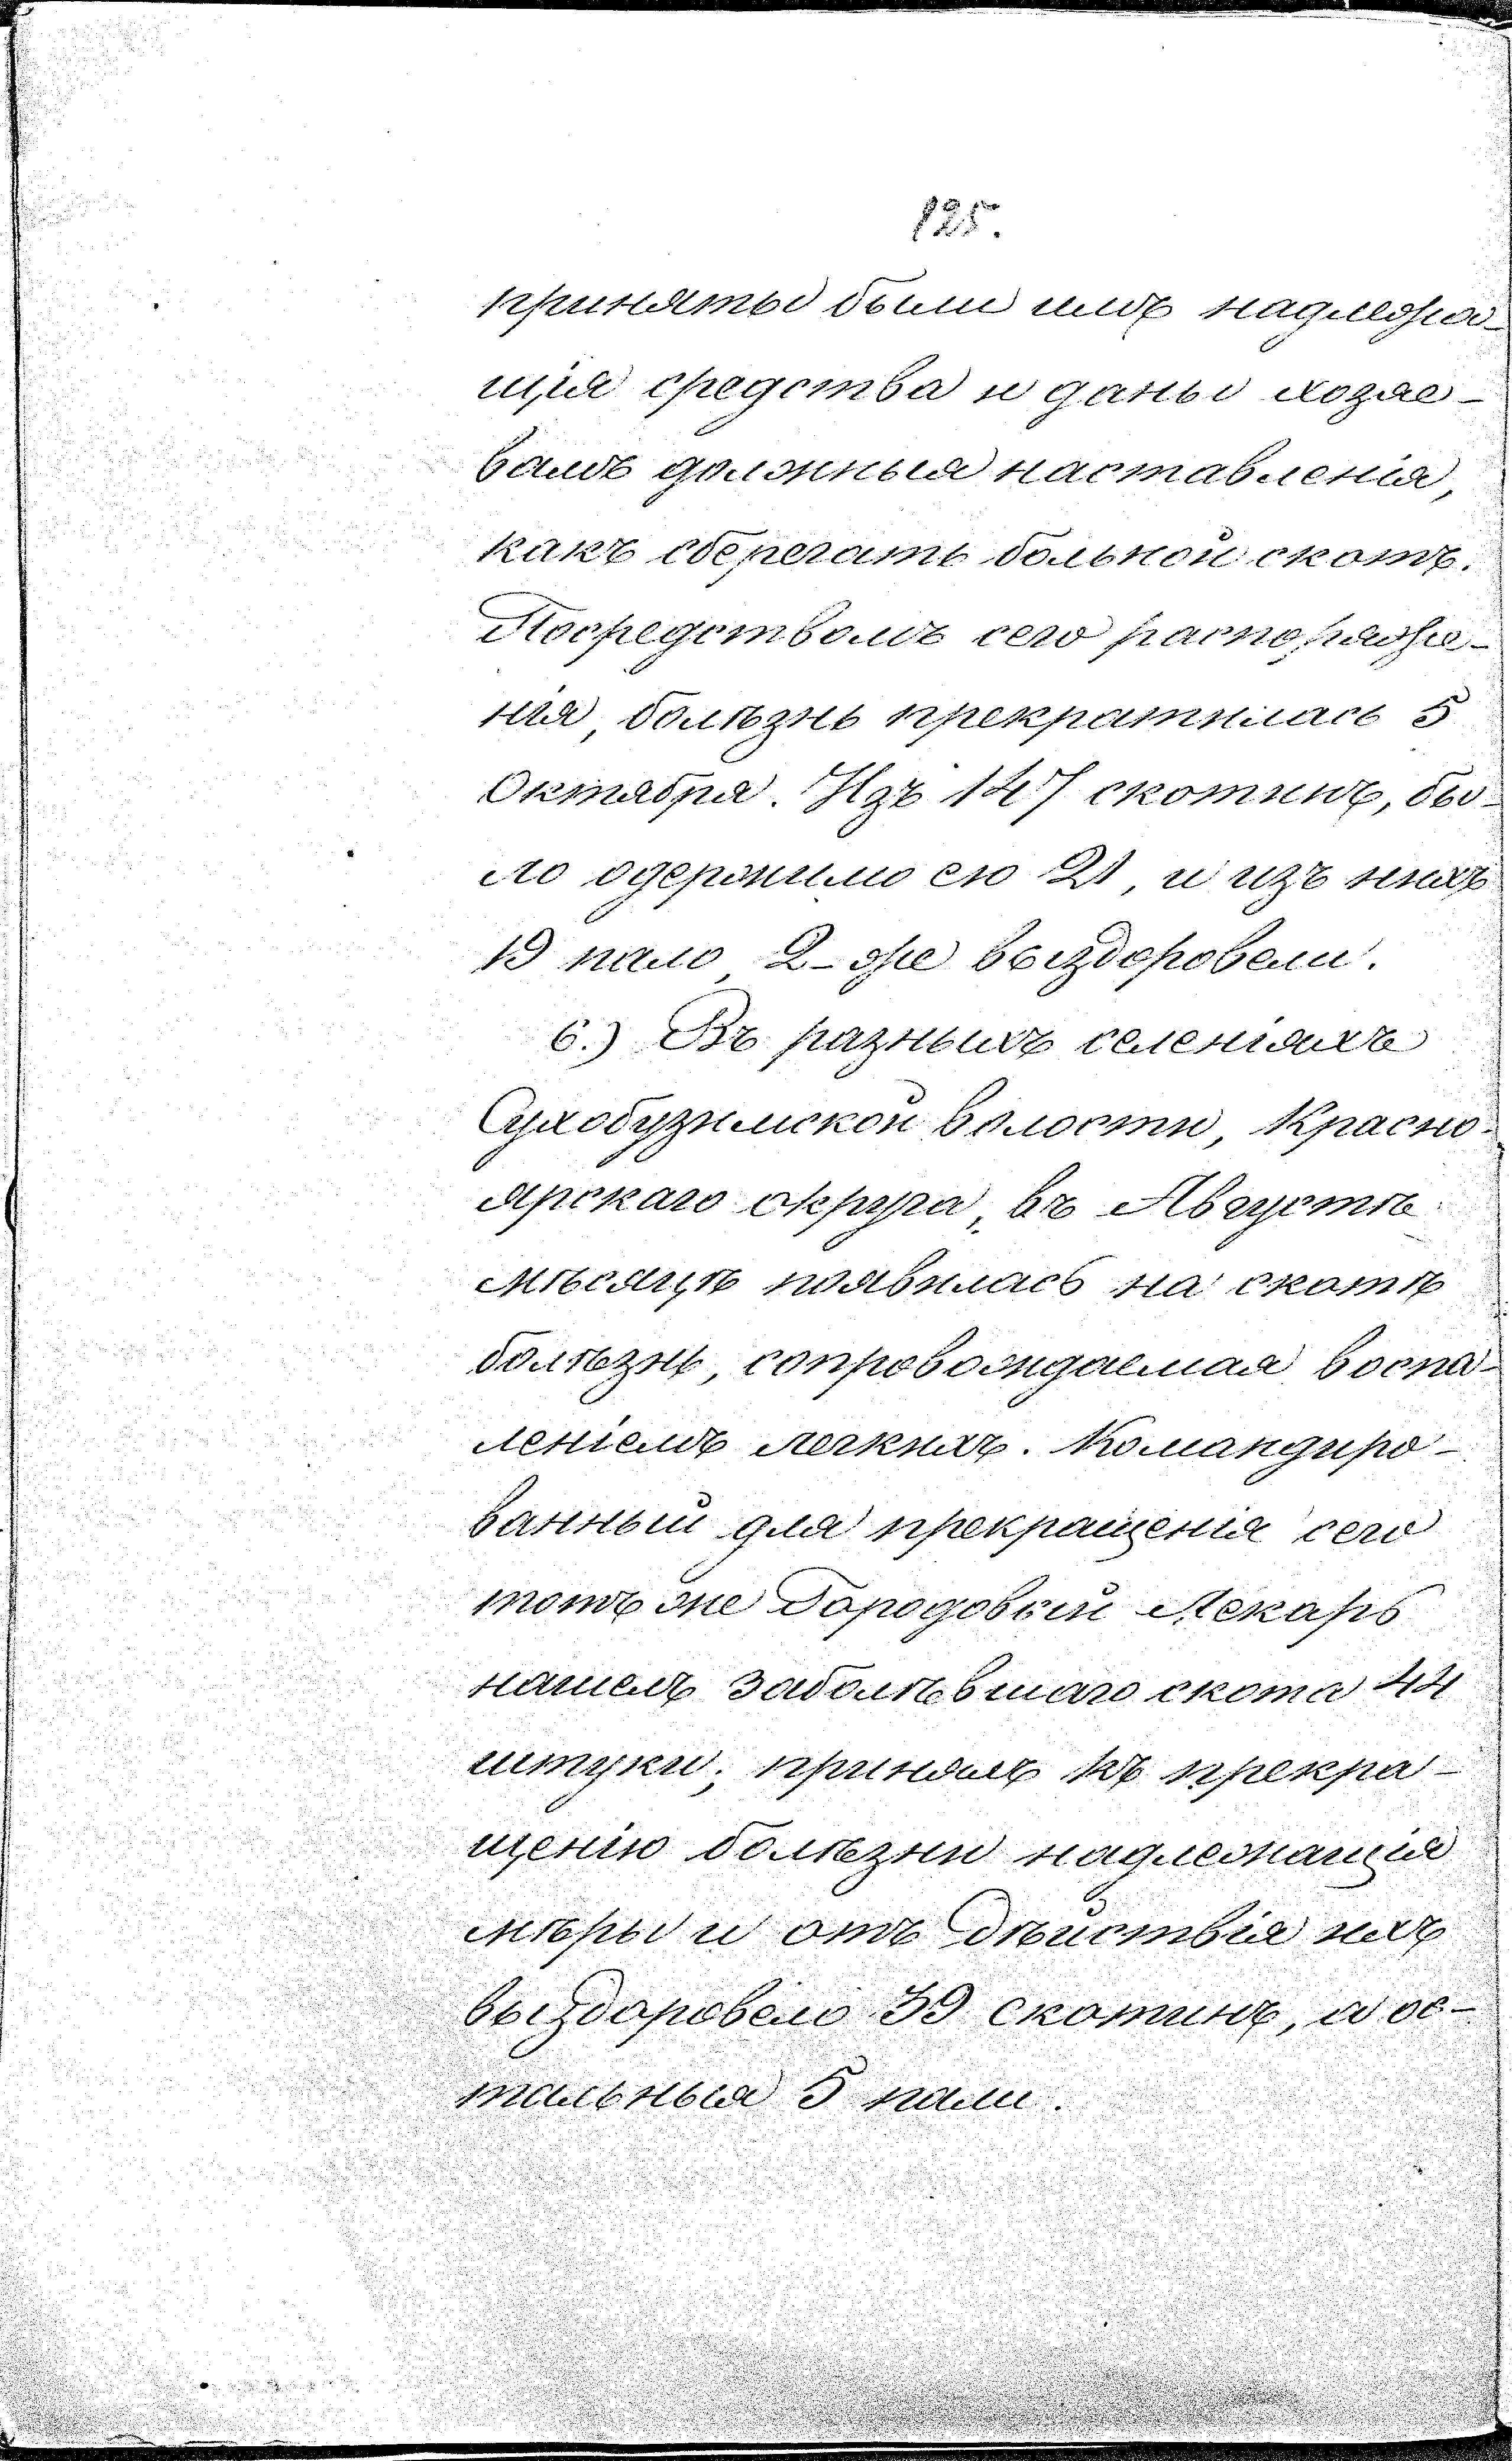 125.
приняты были имъ надлежа-
щія средства и даны хозяе-
вамъ должныя наставленія,
какъ сберегать больной скотъ.
Посредствомъ сего распоряже-
нія, болѣзнь прекратилась 5
Октября. Изъ 147 скотинъ, бы-
ло одержимо ею 21, и изъ нихъ
19 пало, 2-же выздоровели.
6.) Въ разныхъ селеніяхъ
Сухобузимской волости, Красно-
ярскаго округа, въ Августѣ
мѣсяцѣ появилась на скотѣ
болѣзнь, сопровождаемая воспа-
леніемъ легкихъ. Командиро-
ванный для прекращенія сего
тотъ же Городовый Лекарь
нашелъ заболѣвшаго скота 44
штуки; принялъ къ прекра-
щенію болѣзни надлежащія
мѣры и отъ дѣйствія ихъ
выздоровело 39 скотинъ, а ос-
тальныя 5 пали.